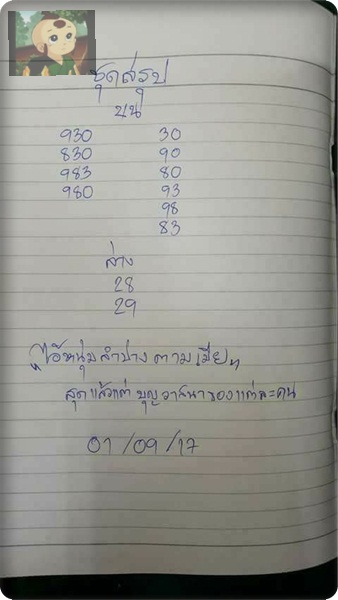 ชุดสรุป
บน
930 30
830 90
983 80
980 93
98
83
ล่าง
28
29
"ไอ้หนุ่มลำปาง ตามเมีย"
สุดแล้วแต่ บุญวาสนาของแต่ละคน
01/09/17